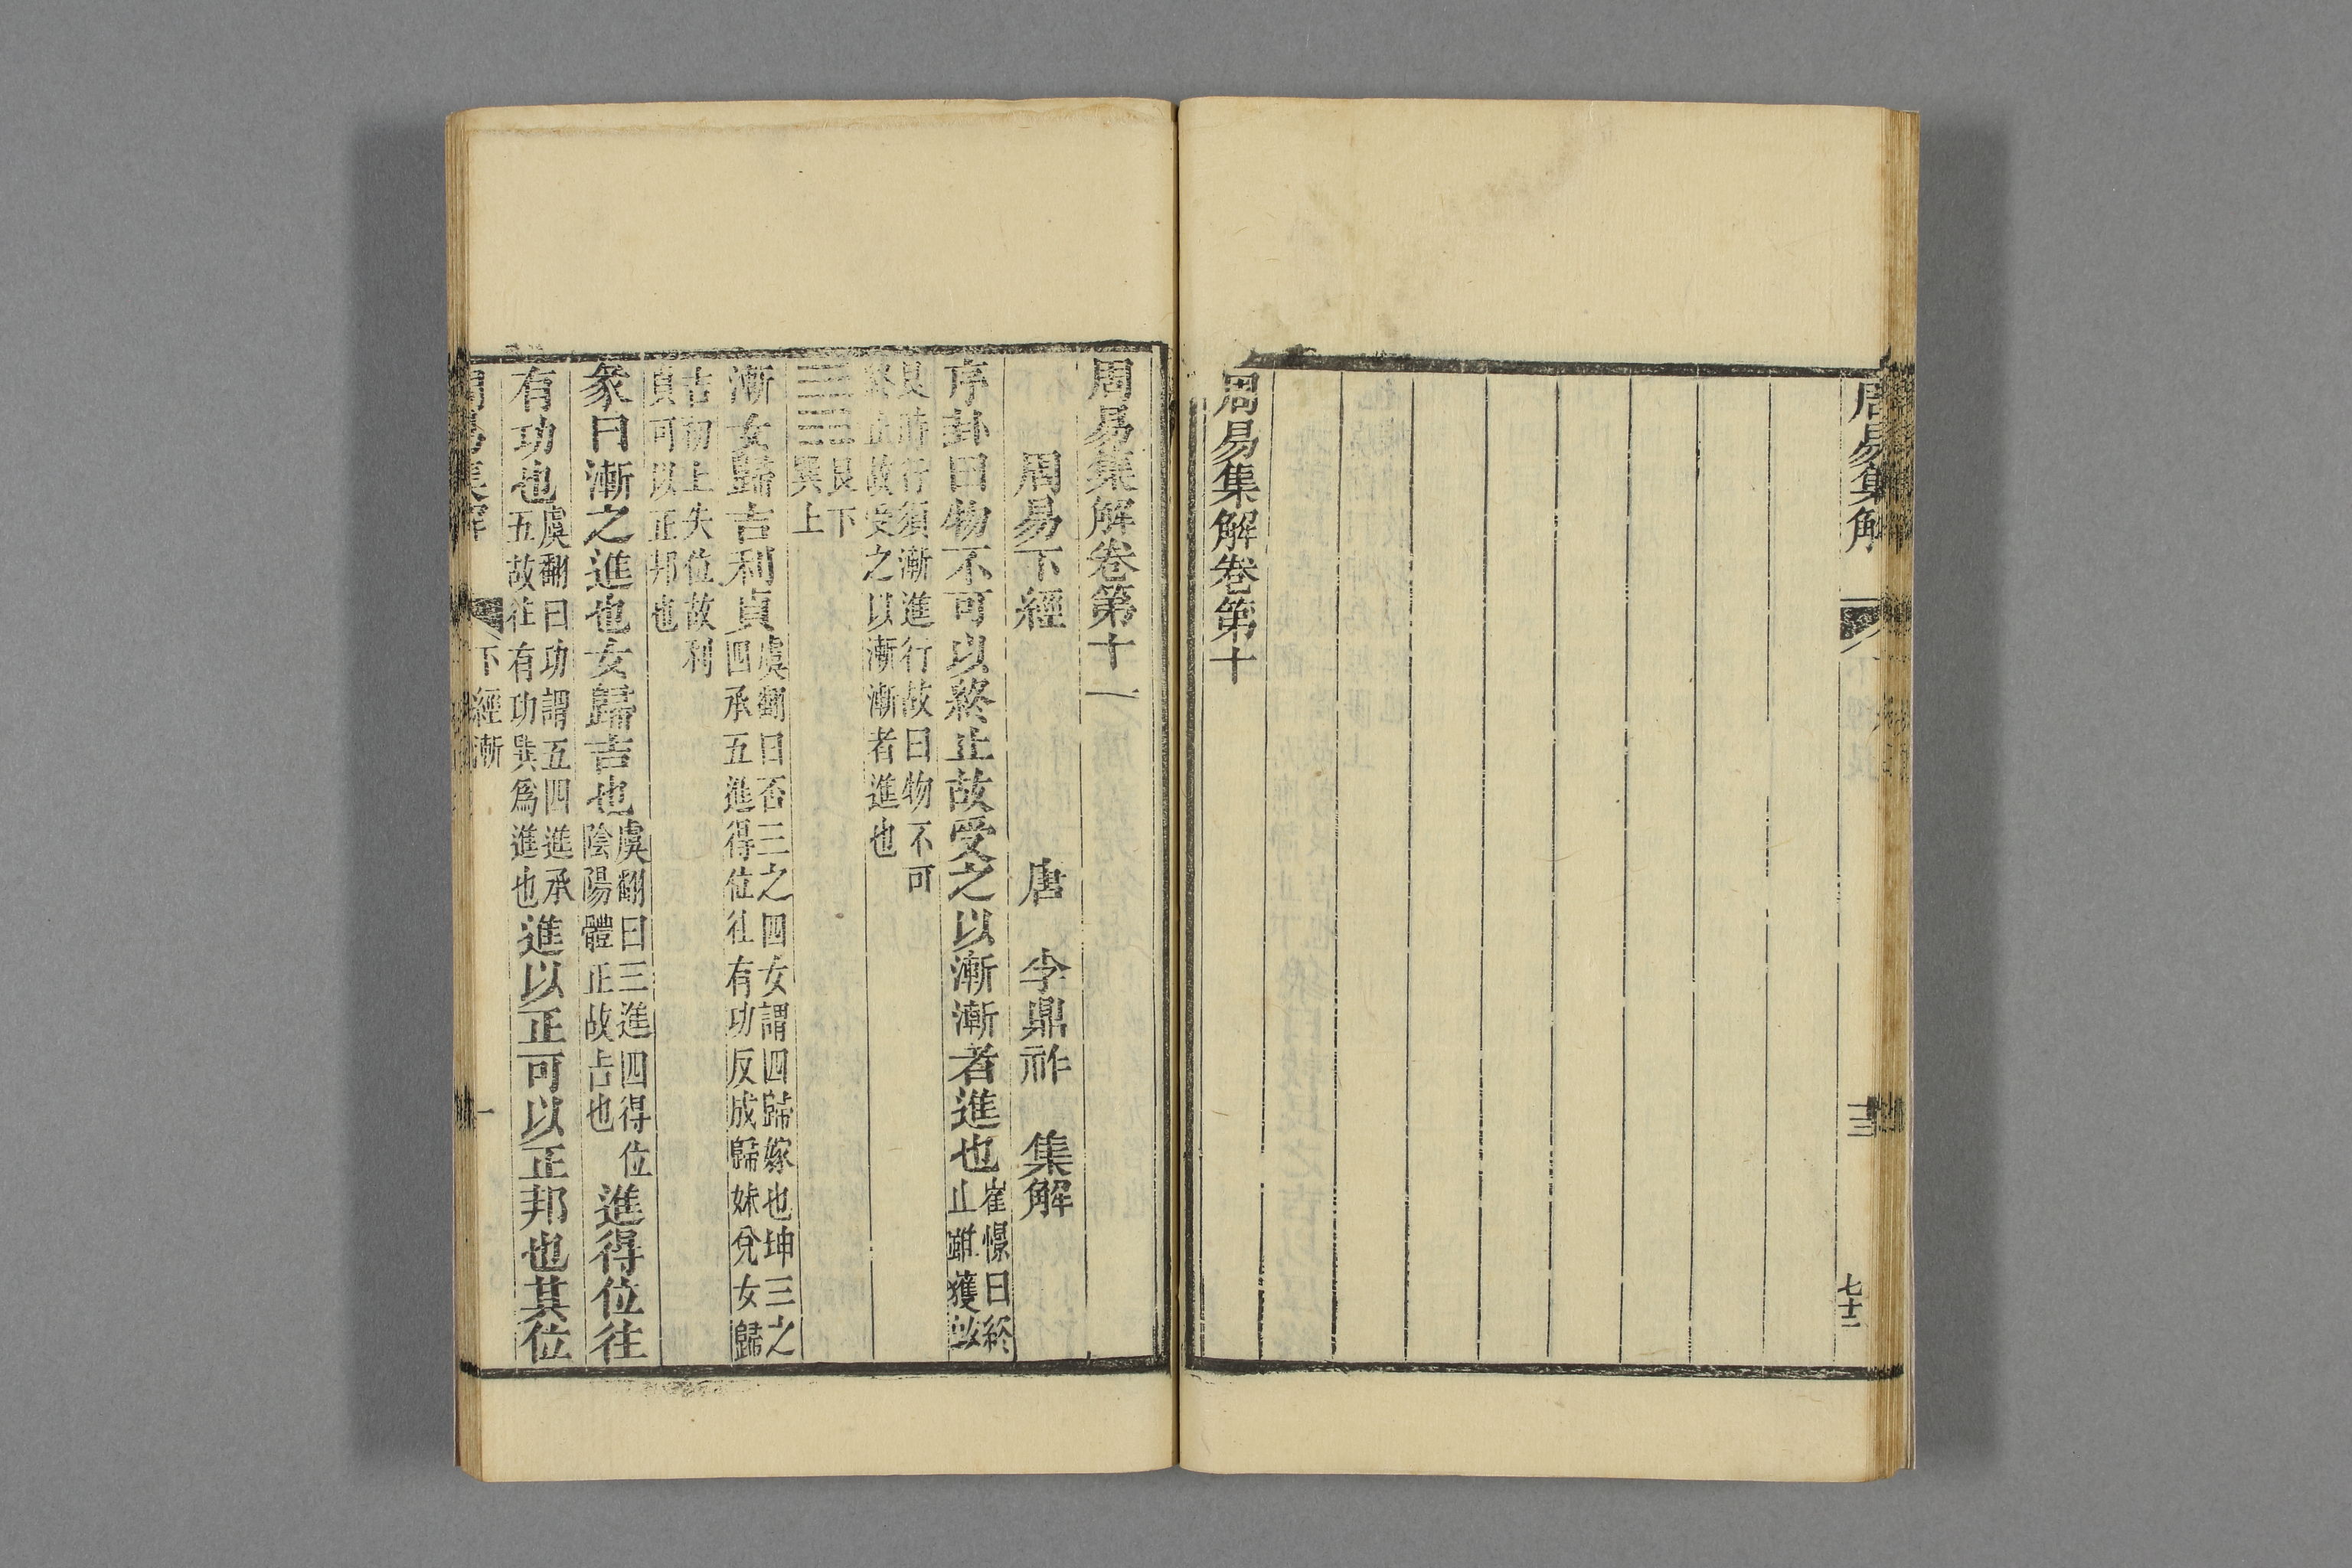 周易集解
十三
七十二
周易集解卷第十
周易集解卷第十一
周易下經 唐 李鼎祚 集解
序卦曰物不可以終止故受之以漸漸者進也崔憬曰終止雖獲
艮時行須漸進行故曰物不可
終止故受之以漸漸者進也
艮下
巽上
漸女歸吉利貞虞翻曰否三之四女謂四歸嫁也坤三之四承五進得位往有功反成歸妹兌女歸
吉初上失位故利
貞可以正邦也
彖曰漸之進也女歸吉也虞翻曰三進四得位陰陽體正故吉也進得位往
有功也虞翻曰功謂五四進承五故往有功巽爲進也進以正可以正邦也其位
周易集解 下經 漸 一